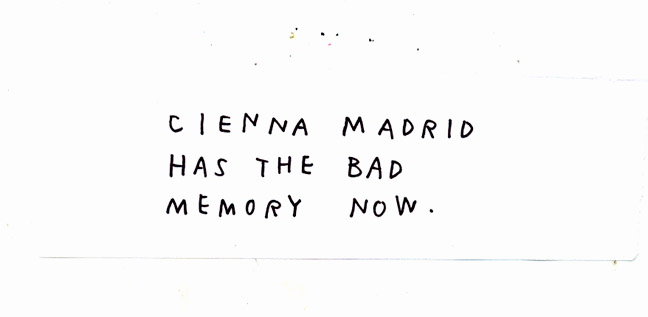 CIENNA MADRID
HAS THE BAD
MEMORY NOW.